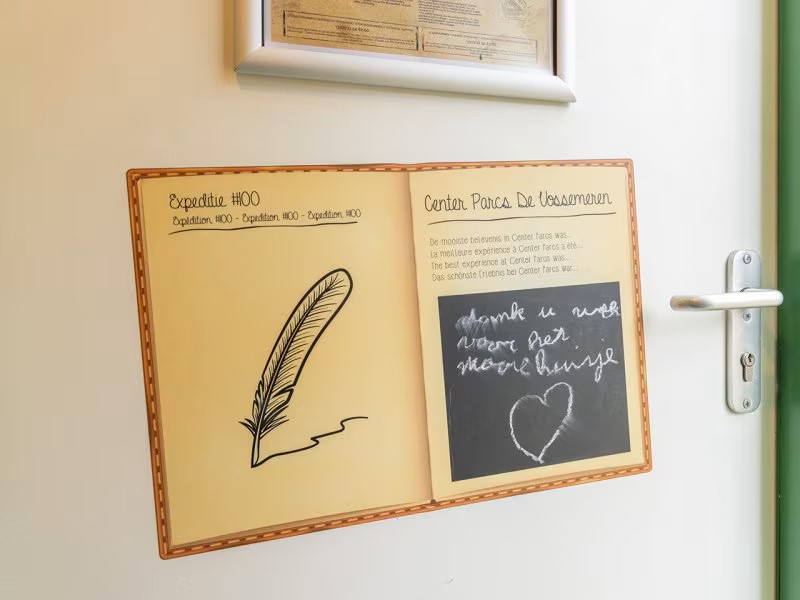 Expeditie #100
Expédition #100 - Expedition #100 - Expedition #100
Center Parcs De Vossemeren
De mooiste belevenis in Center Parcs was...
La meilleure expérience à Center Parcs a été...
The best experience at Center Parcs was...
Das schönste Erlebnis bei Center Parcs war...
dank u wel
voor het
mooie huisje